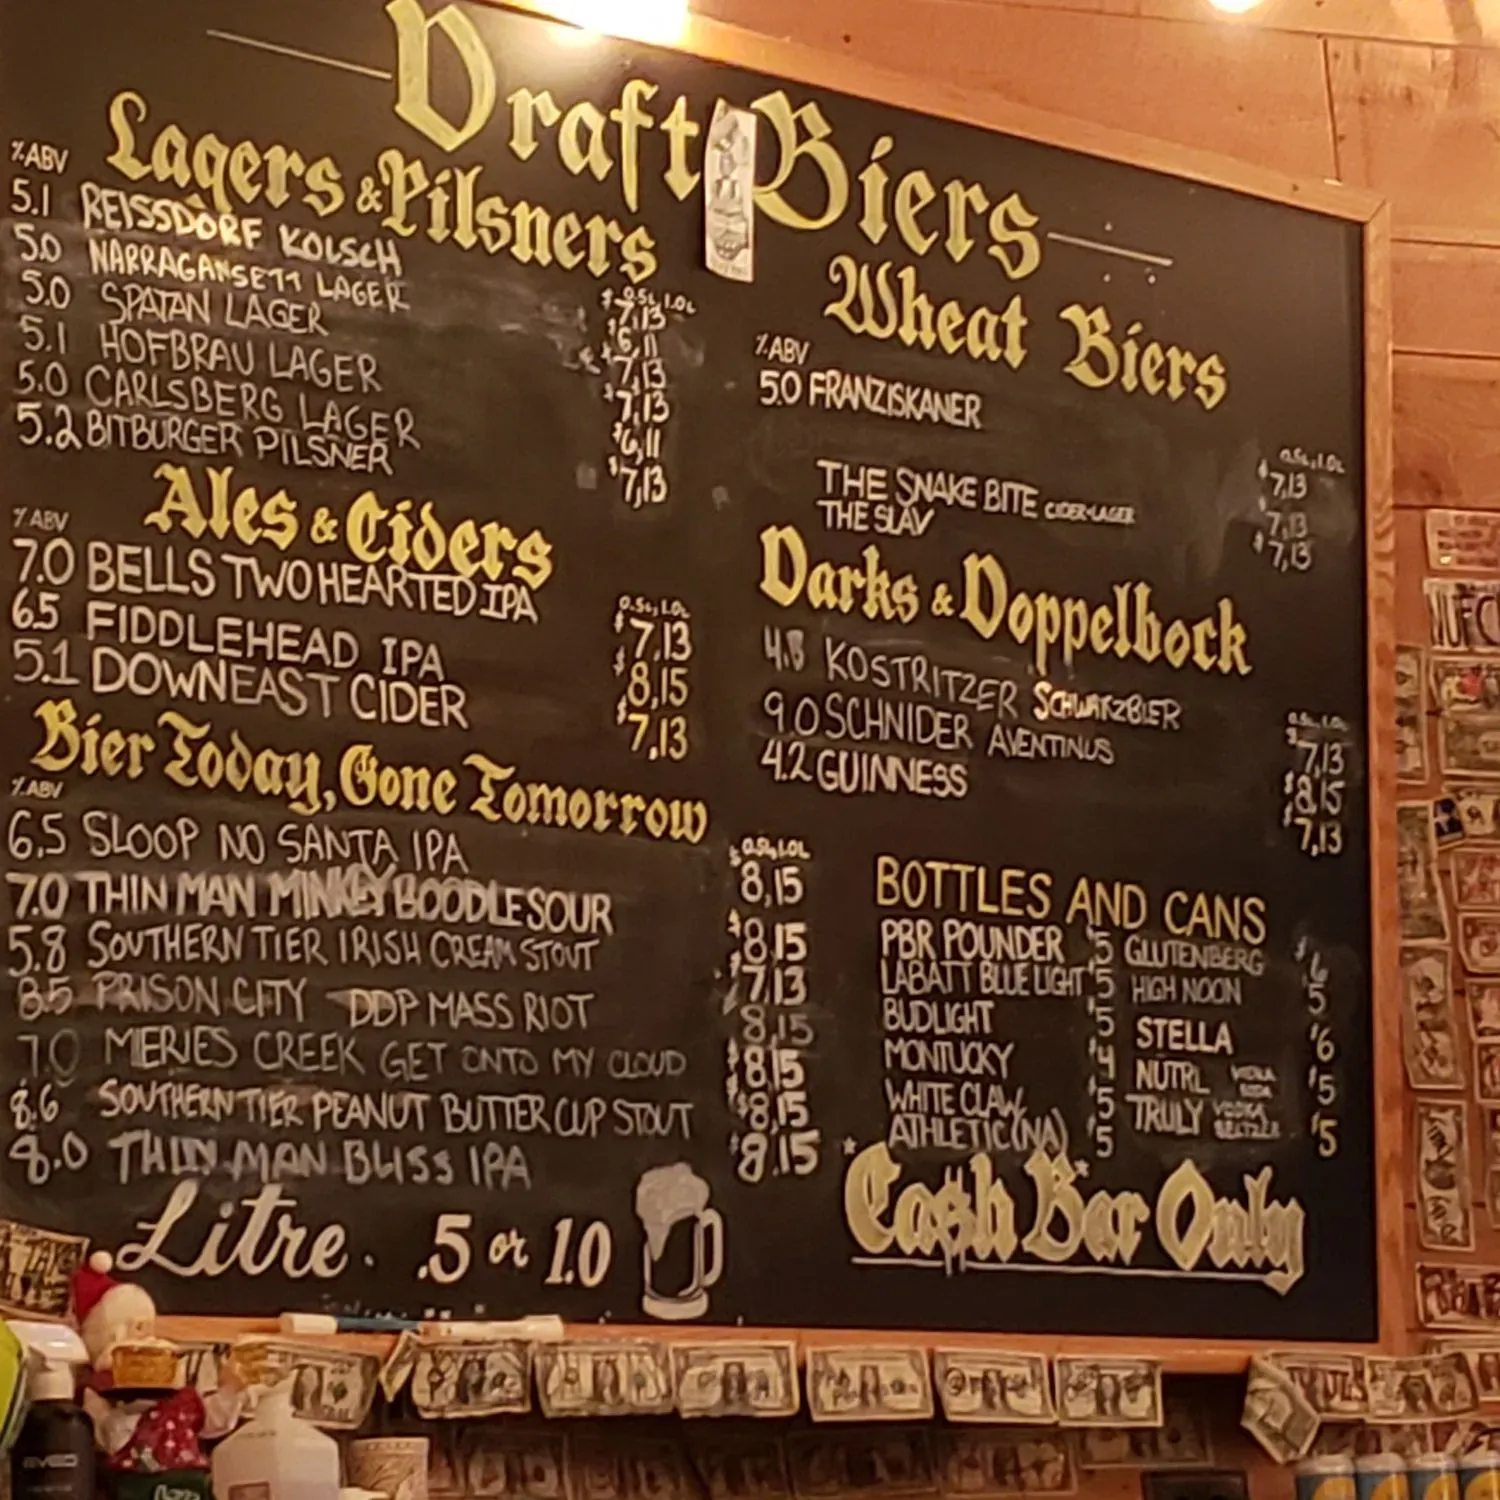 Draft Biers
Lagers & Pilsners
% ABV
$ 0.5L, 1.0L
5.1 REISSDORF KOLSCH 7,13
5.0 NARRAGANSETT LAGER $6,11
5.0 SPATAN LAGER 7,13
5.1 HOFBRAU LAGER $7,13
5.0 CARLSBERG LAGER $6,11
5.2 BITBURGER PILSNER $7,13
Ales & Ciders
% ABV
0.5L, 1.0L
7.0 BELLS TWO HEARTED IPA $7,13
6.5 FIDDLEHEAD IPA $8,15
5.1 DOWNEAST CIDER $7,13
Bier Today, Gone Tomorrow
% ABV
$ 0.5L, 1.0L
6.5 SLOOP NO SANTA IPA 8,15
7.0 THIN MAN MINKEY BOODLE SOUR $8,15
5.8 SOUTHERN TIER IRISH CREAM STOUT 7,13
8.5 PRISON CITY DDP MASS RIOT 8,15
7.0 MIERIES CREEK GET ONTO MY CLOUD $8,15
8.6 SOUTHERN TIER PEANUT BUTTER CUP STOUT $8,15
8.0 THIN MAN BLISS IPA $8.15
Litre . .5 or 1.0
Wheat Biers
% ABV
5.0 FRANZISKANER
0.5L, 1.0L
$7,13
THE SNAKE BITE CIDER+LAGER $7,13
THE SLAV $7,13
Darks & Doppelbock
4.8 KOSTRITZER SCHWARZBIER
0.5L, 1.0L
$7,13
9.0 SCHNIDER AVENTINUS $8,15
4.2 GUINNESS $7,13
BOTTLES AND CANS
PBR POUNDER $5 GLUTENBERG $6
LABATT BLUE LIGHT $5 HIGH NOON 5
BUDLIGHT $5 STELLA $6
MONTUCKY $4 NUTRL VODKA SODA $5
WHITE CLAW $5 TRULY VODKA SELTZER $5
ATHLETIC (NA) $5
*Ca$h Bar Only*